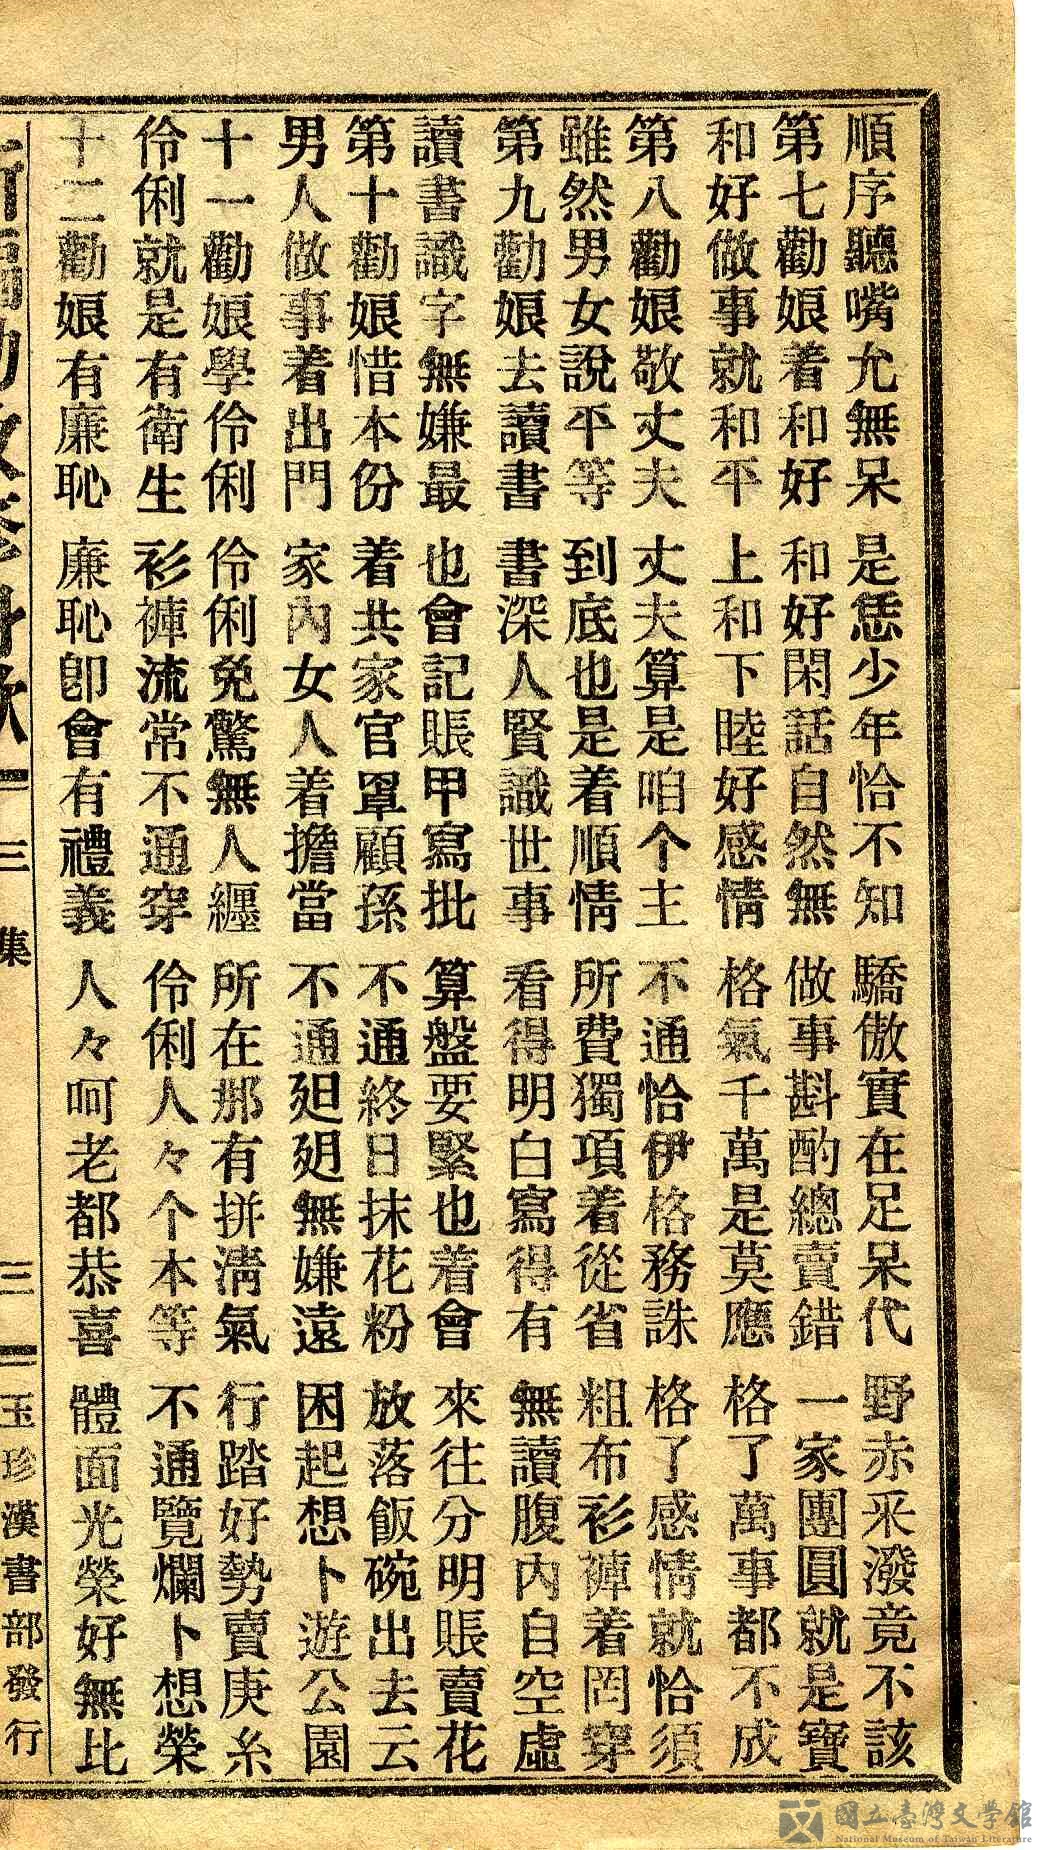 順序聽嘴允無呆 是恁少年恰不知 驕傲實在足呆代 野赤釆潑竟不該
第七勸娘着和好 和好閑話自然無 做事斟酌總賣錯 一家團圓就是寶
和好做事就和平 上和下睦好感情 格氣千萬是莫應 格了萬事都不成
第八勸娘敬丈夫 丈夫算是咱个主 不通恰伊格務誅 格了感情就恰須
雖然男女說平等 到底也是着順情 所費獨項着從省 粗布衫褲着罔穿
第九勸娘去讀書 書深人賢識世事 看得明白寫得有 無讀腹內自空虛
讀書識字無嫌最 也會記賬甲寫批 算盤要緊也着會 來往分明賬賣花
第十勸娘惜本份 着共家官罩顧孫 不通終日抹花粉 放落飯碗出去云
男人做事着出門 家內女人着擔當 不通廻廻無嫌遠 困起想卜遊公園
十一勸娘學伶俐 伶俐免驚無人纏 所在那有拼淸氣 行踏好勢賣庚糸
伶俐就是有衛生 衫褲流常不通穿 伶俐人々个本等 不通覽爛卜想榮
十二勸娘有廉恥 廉恥卽會有禮義 人々呵老都恭喜 體面光榮好無比
三集 三 玉珍漢書部發行
國立臺灣文學館
National Museum of Taiwan Literature